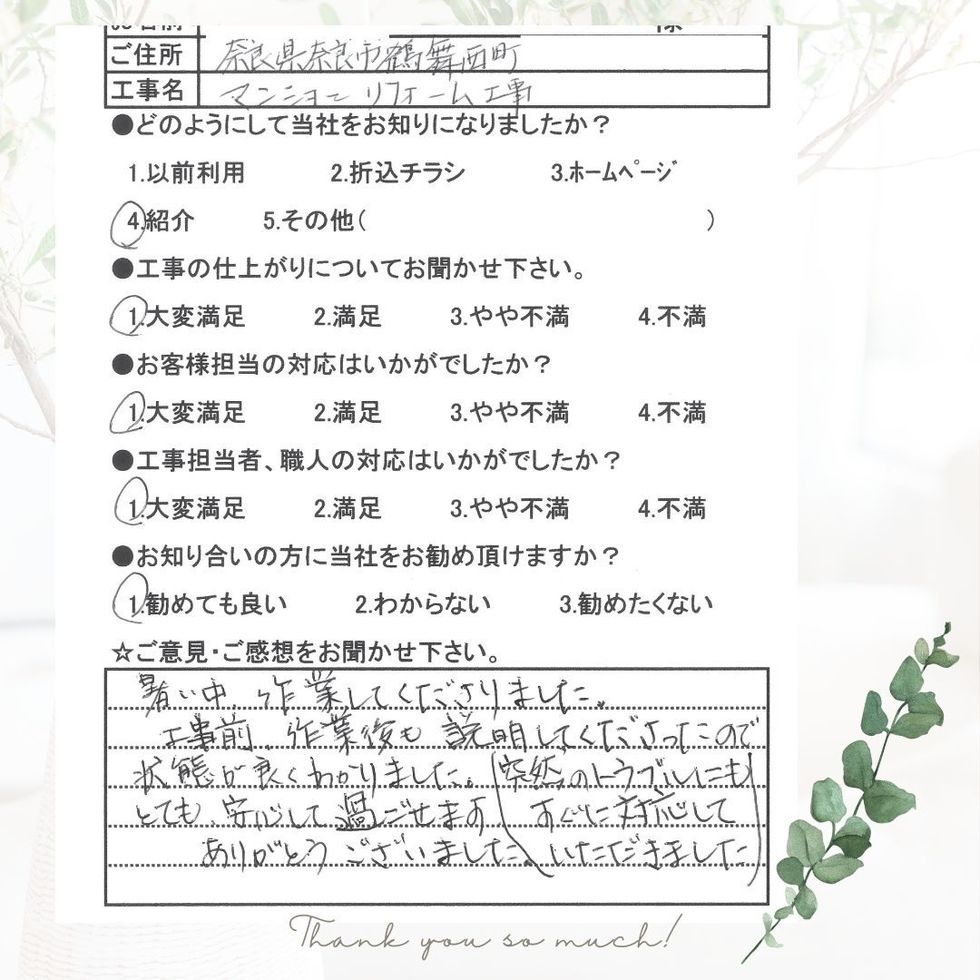 お名前 様
ご住所 奈良県奈良市鶴舞西町
工事名 マンションリフォーム工事
●どのようにして当社をお知りになりましたか？
1.以前利用 2.折込チラシ 3.ﾎｰﾑﾍﾟｰｼﾞ
4.紹介 5.その他( )
●工事の仕上がりについてお聞かせ下さい。
1.大変満足 2.満足 3.やや不満 4.不満
●お客様担当の対応はいかがでしたか？
1.大変満足 2.満足 3.やや不満 4.不満
●工事担当者、職人の対応はいかがでしたか？
1.大変満足 2.満足 3.やや不満 4.不満
●お知り合いの方に当社をお勧め頂けますか？
1.勧めても良い 2.わからない 3.勧めたくない
☆ご意見・ご感想をお聞かせ下さい。
暑い中、作業してくださりました。
工事前、作業後も説明してくださったので
状態が良くわかりました。
とても、安心して過ごせます
ありがとうございました。
(突然のトラブルにも
すぐに対応して
いただきました)
Thank you so much!